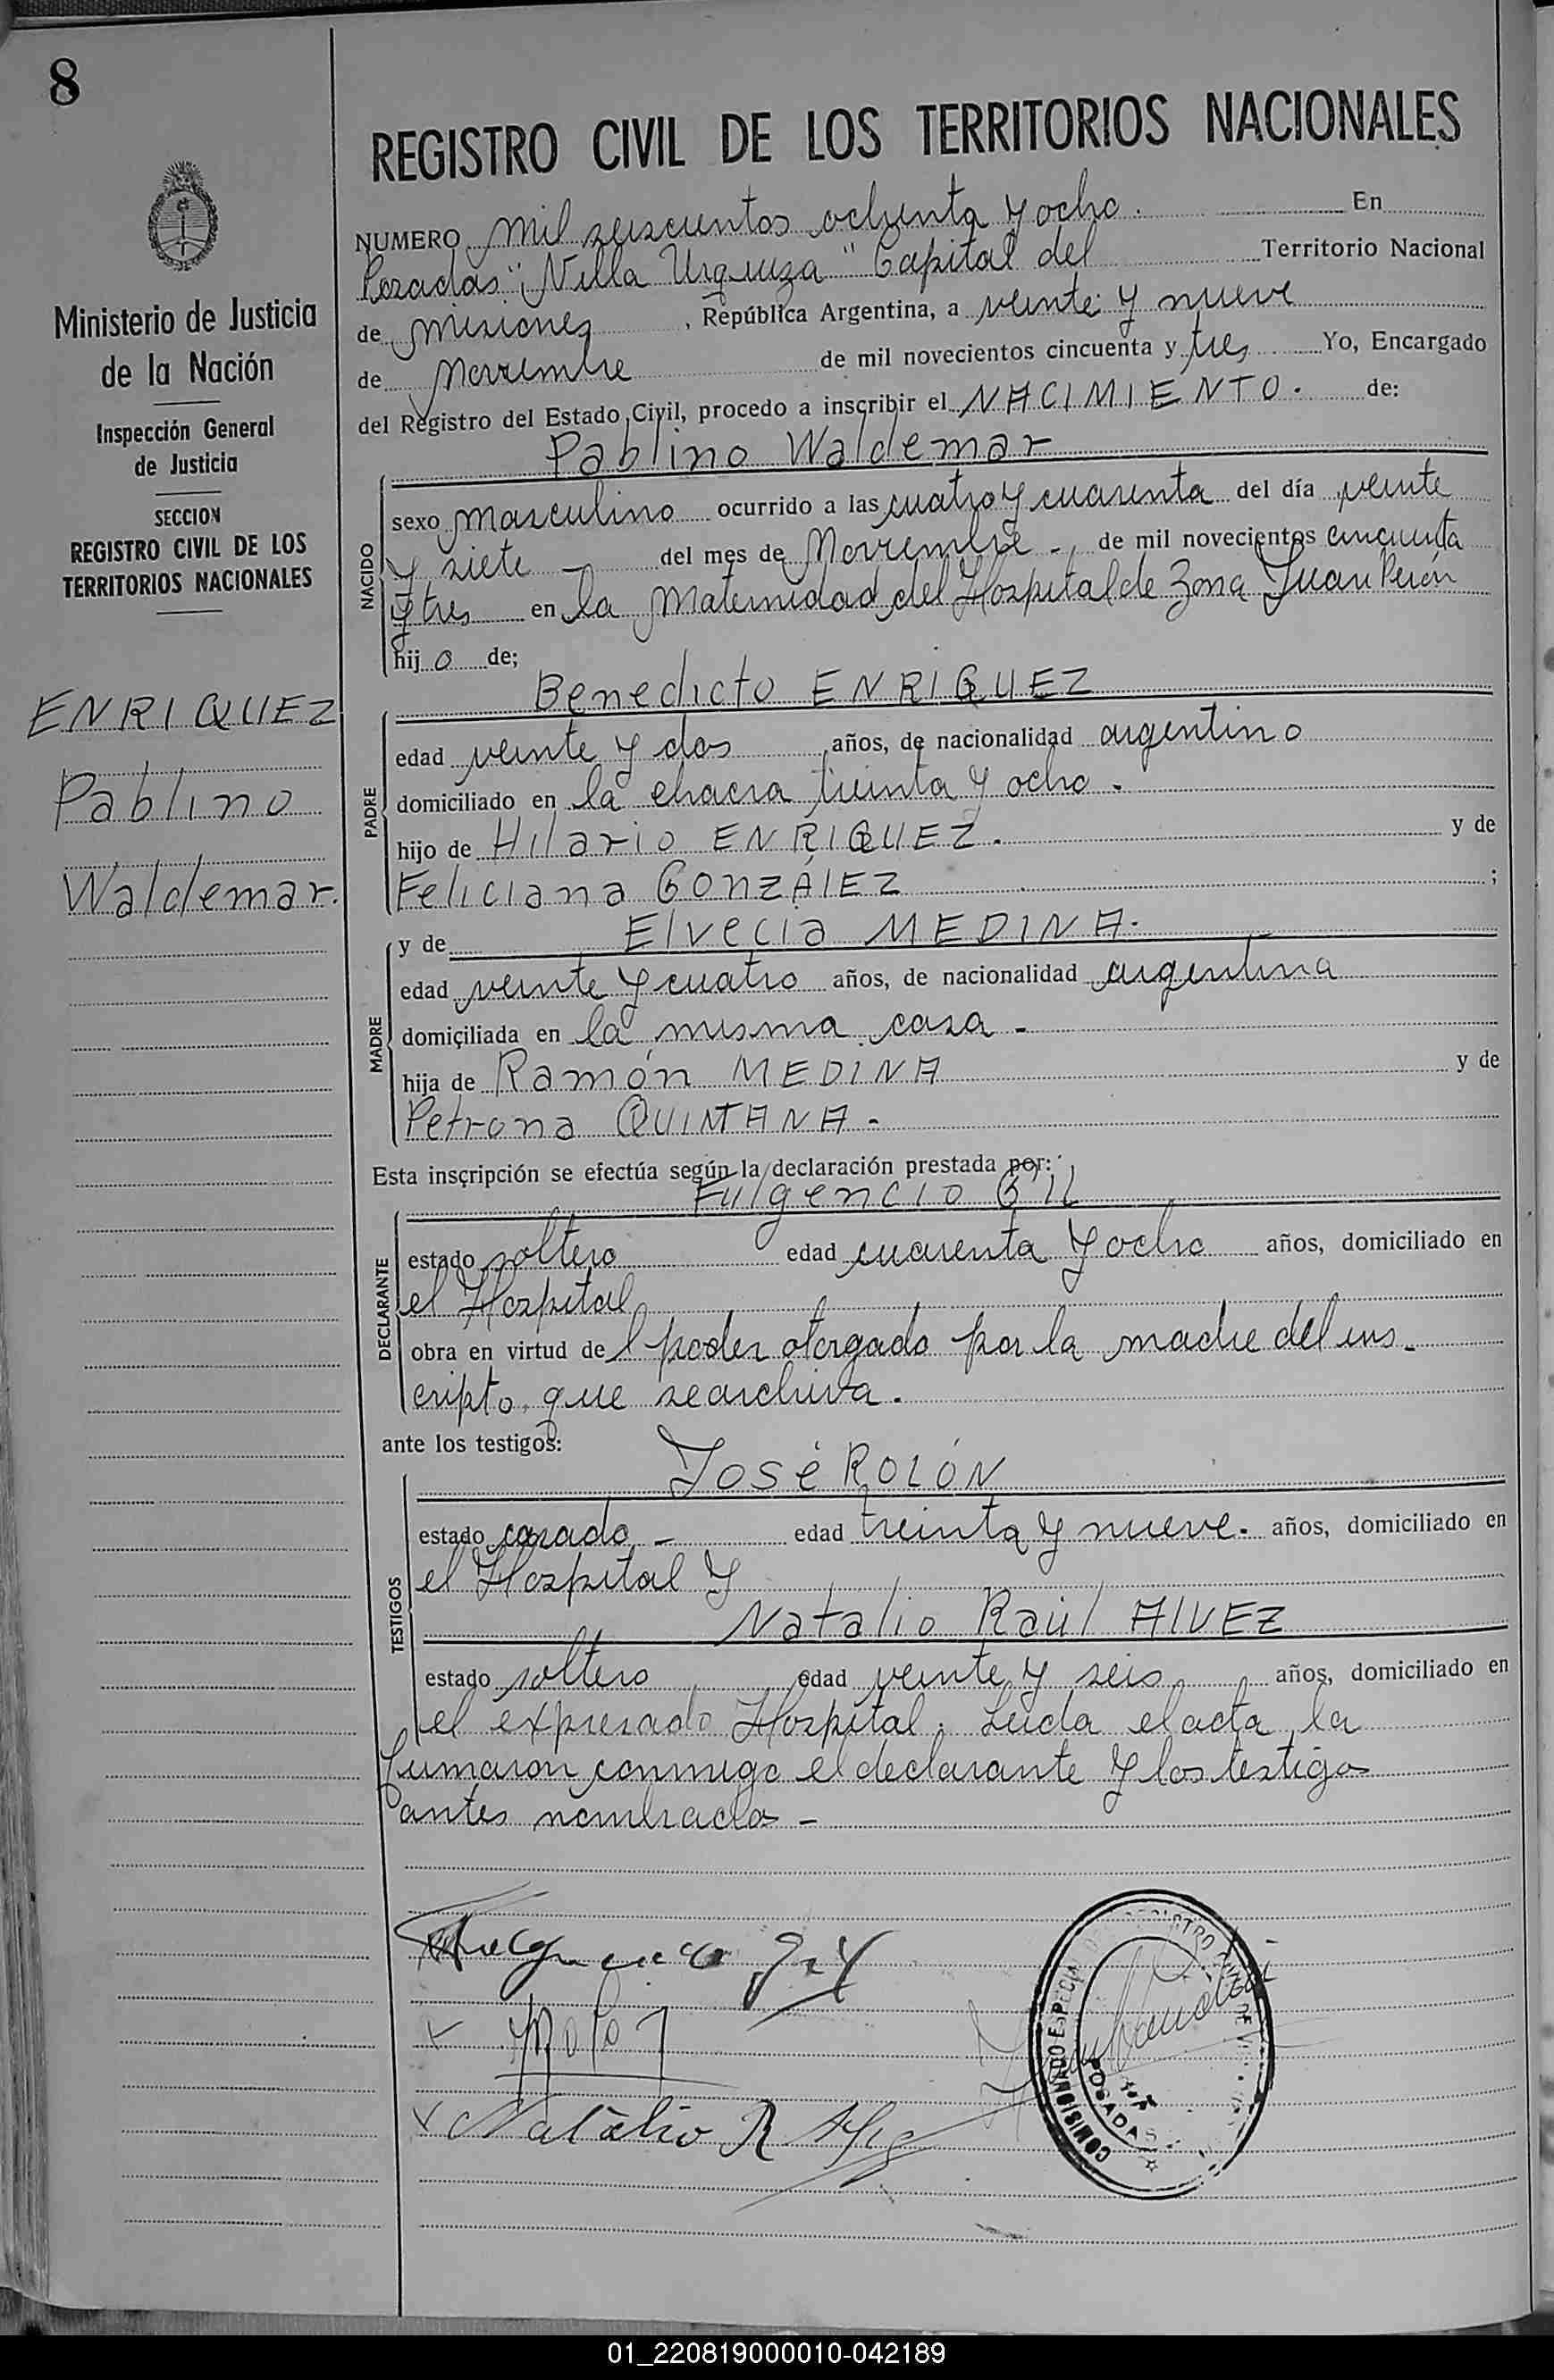 8
REGISTRO CIVIL DE LOS TERRITORIOS NACIONALES
Ministerio de Justicia
de la Nación
Inspección General
de Justicia
SECCION
REGISTRO CIVIL DE LOS
TERRITORIOS NACIONALES
ENRIQUEZ
Pablino
Waldemar.
NUMERO mil seiscientos ochenta y ocho. En
Posadas "Villa Urquiza" Capital del Territorio Nacional
de Misiones, República Argentina, a veinte y nueve
de Noviembre de mil novecientos cincuenta y tres Yo, Encargado
del Registro del Estado Civil, procedo a inscribir el NACIMIENTO. de:
Pablino Waldemar
NACIDO
sexo masculino ocurrido a las cuatro y cuarenta del día veinte
y siete - del mes de Noviembre -, de mil novecientos cincuenta
y tres en la Maternidad del Hospital de Zona Juan Perón
hijo de;
Benedicto ENRIQUEZ
PADRE
edad veinte y dos años, de nacionalidad argentino
domiciliado en la chacra treinta y ocho.
hijo de Hilario ENRIQUEZ. y de
Feliciana GONZÁlEZ ;
MADRE
y de Elvecia MEDINA.
edad veinte y cuatro años, de nacionalidad argentina
domiciliada en la misma casa -
hija de Ramón MEDINA y de
Petrona QUINTANA -
Esta inscripción se efectúa según la declaración prestada por:
Fulgencio Gil
DECLARANTE
estado soltero edad cuarenta y ocho años, domiciliado en
el Hospital
obra en virtud del poder otorgado por la madre del ins-
cripto, que se archiva.
ante los testigos:
José ROLÓN
TESTIGOS
estado casado - edad treinta y nueve. años, domiciliado en
el Hospital y
Natalio Raúl AlVEZ
estado soltero edad veinte y seis años, domiciliado en
el expresado Hospital. Leída el acta, la
firmaron conmigo el declarante y los testigos
antes nombrados -
Natalio R
COMISIONADO ESPECIAL
POSADAS
01_220819000010-042189